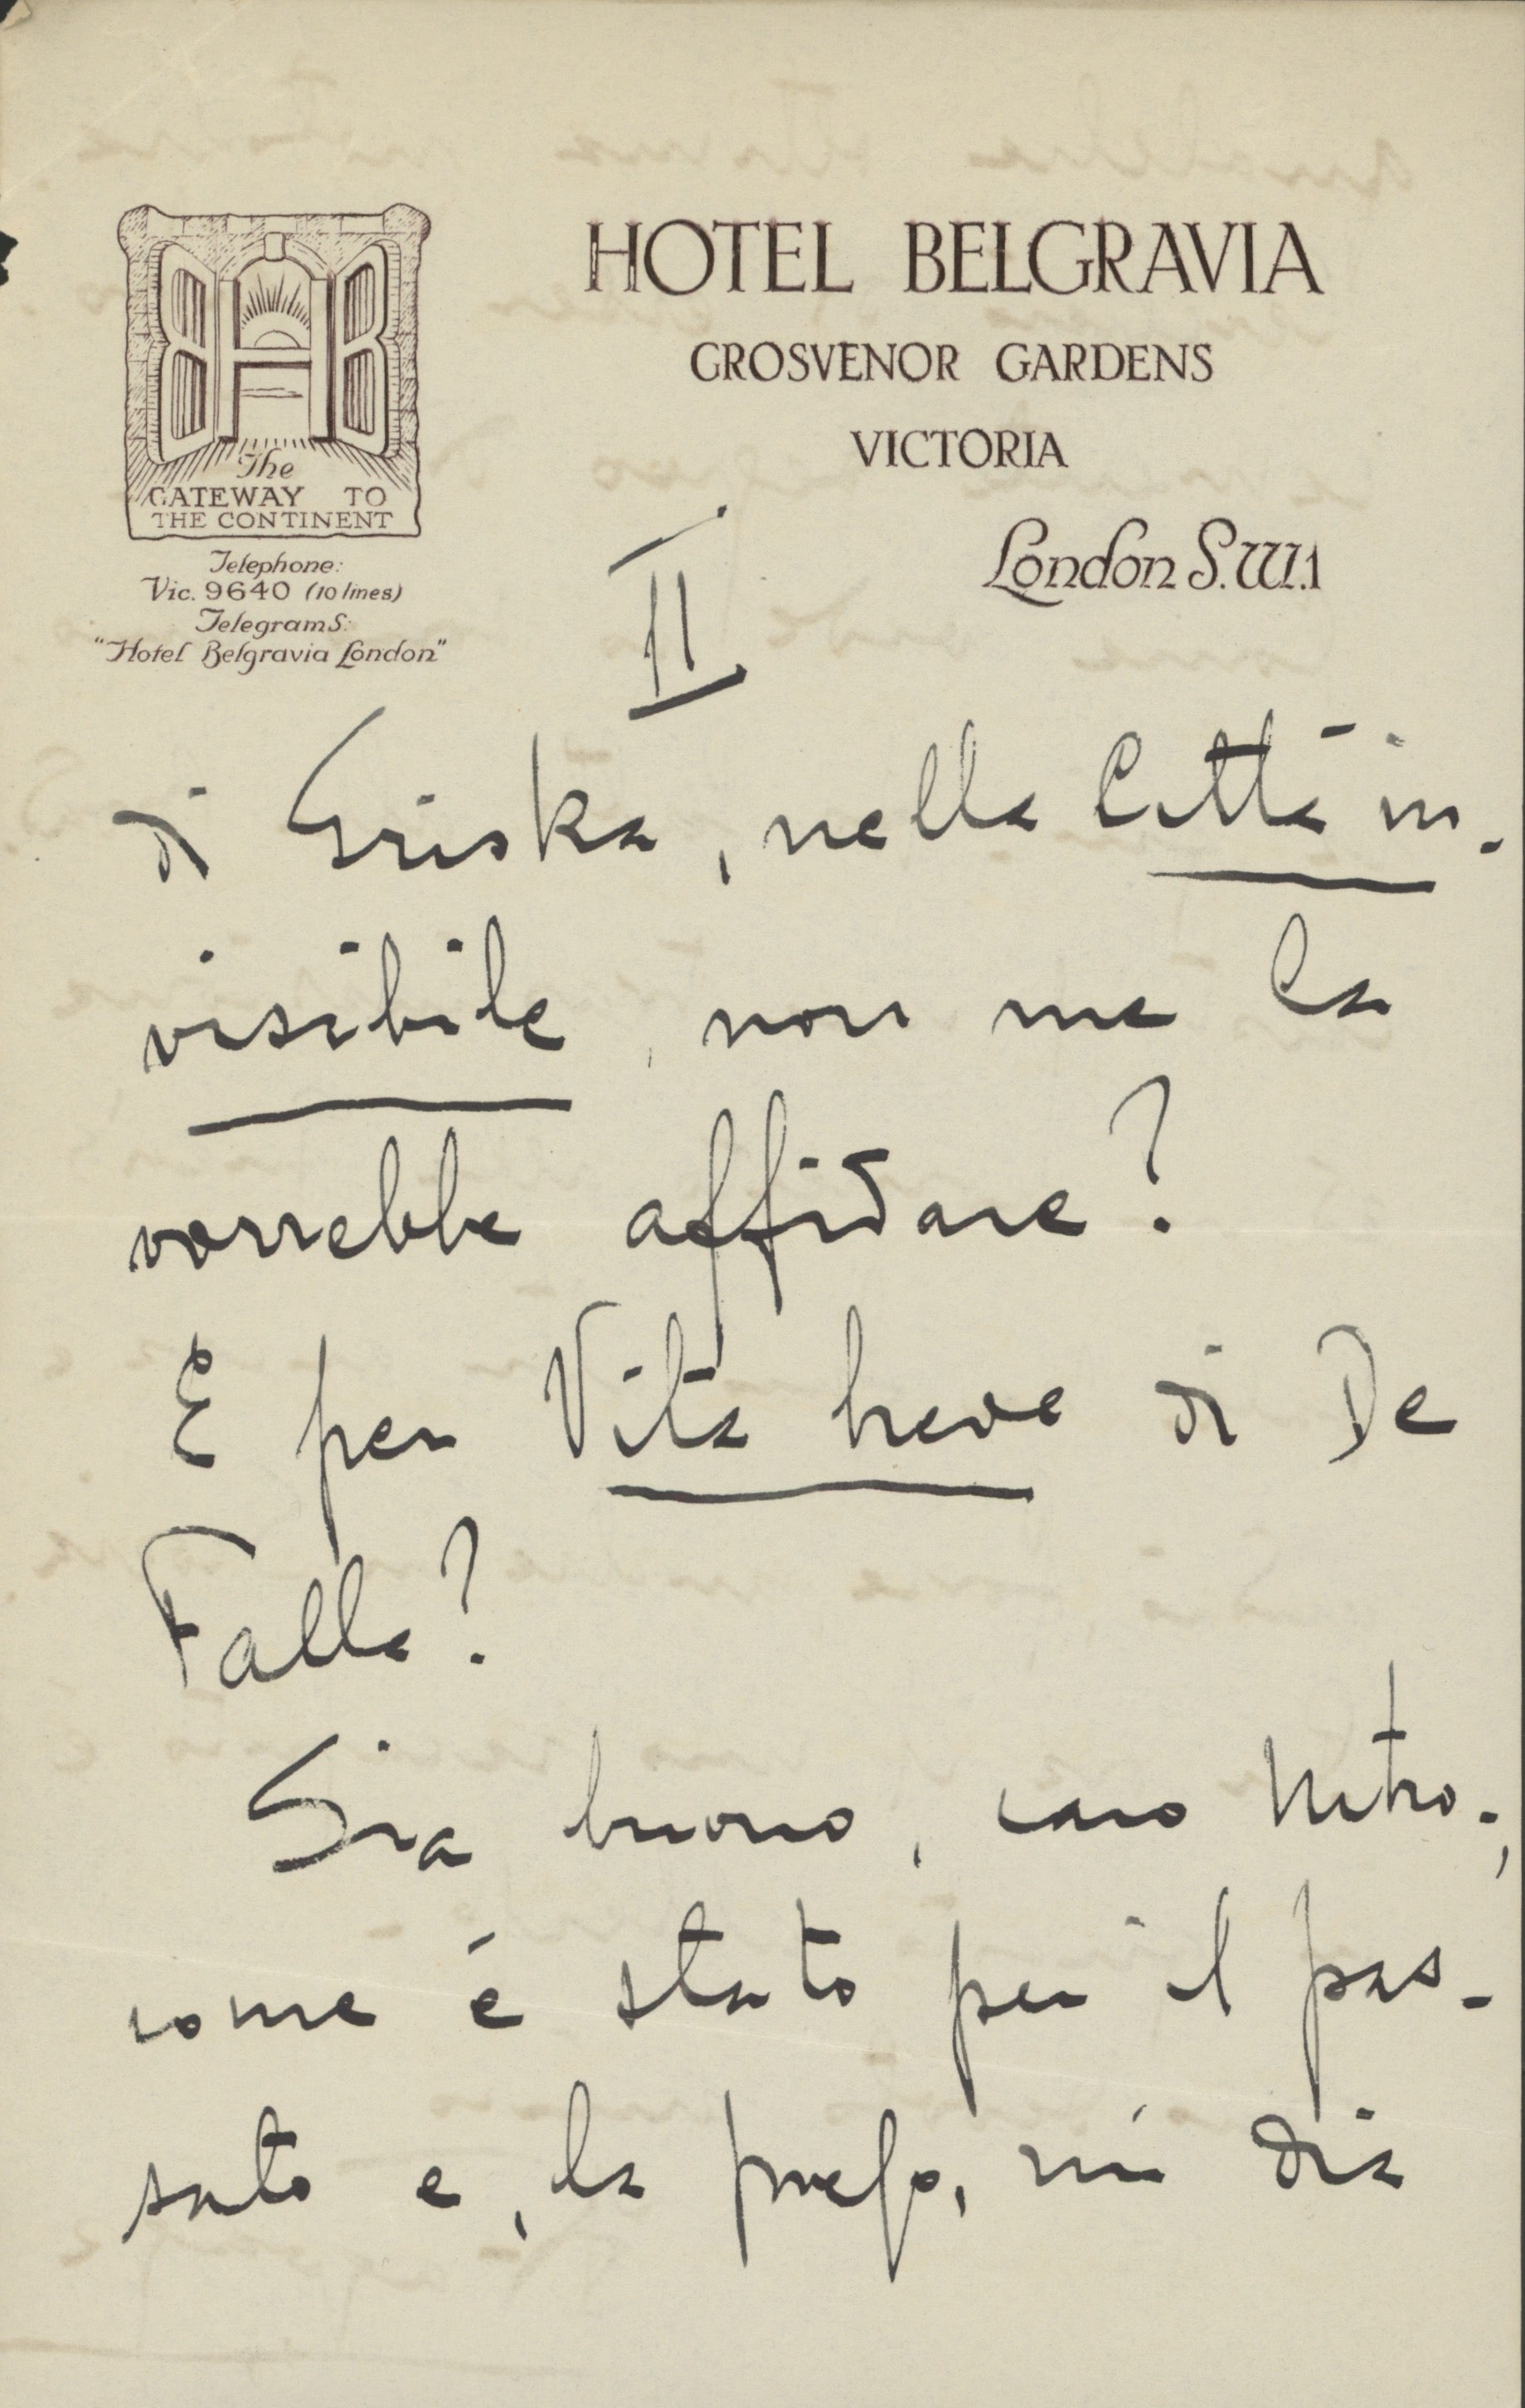 HOTEL BELGRAVIA
GROSVENOR GARDENS
VICTORIA
London S.W.1
The
GATEWAY TO
THE CONTINENT
Telephone:
Vic. 9640 (10 lines)
Telegrams:
"Hotel Belgravia London"
II
di Griska, nella Città in-
visibile, non me la
vorrebbe affidare?
E per Vita breve di De
Falla?
Sia buono, caro Mstro.,
come è stato per il pas-
sato e, la prego, mi dia